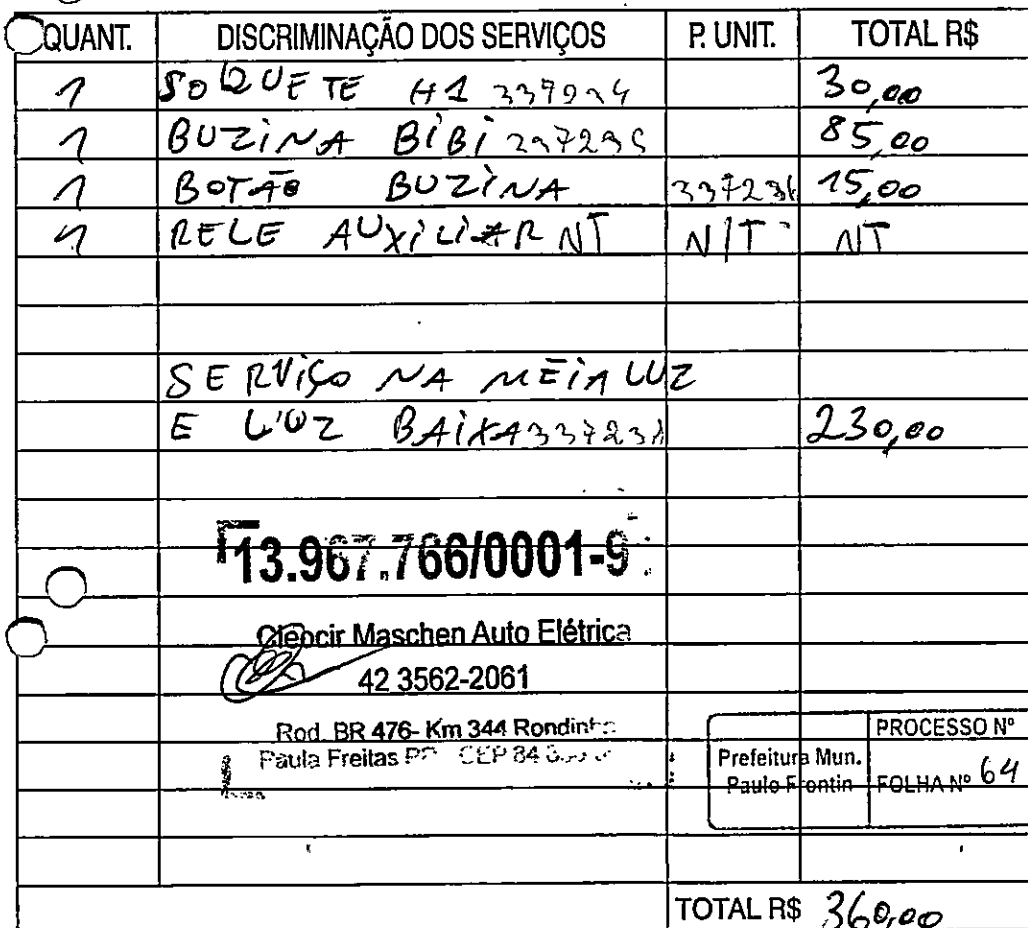 QUANT. DISCRIMINAÇÃO DOS SERVIÇOS P. UNIT. TOTAL R$
1 SOQUETE H1 30,00
1 BUZINA BIBI 85,00
1 BOTÃO BUZINA 15,00
1 RELE AUXILIAR NT N/T NT
SERVIÇO NA MEIA LUZ
E LUZ BAIXA 230,00
13.967.766/0001-9
Cleocir Maschen Auto Elétrica
42 3562-2061
Rod. BR 476- Km 344
Paula Freitas CEP 84
PROCESSO Nº
Prefeitura Mun.
Paulo Frontin FOLHA Nº 64
TOTAL R$ 360,00